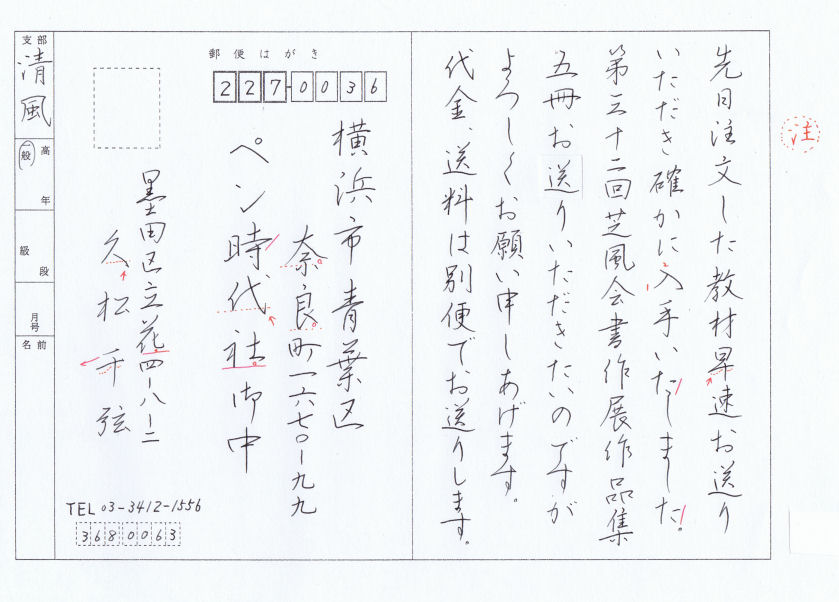 注
先日注文した教材早速お送り
いただき確かに入手いたしました。
第三十二回芝風会書作展作品集
五冊お送りいただきたいのですが
よろしくお願い申しあげます。
代金、送料は別便でお送りします。
郵便はがき
227-0036
横浜市青葉区
奈良町一六七〇ー九九
ペン時代社御中
墨田区立花四ー八ー二
久松千弦
TEL 03-3412-1556
3680063
支部
清風
高
一般
年
級
段
月号
名前